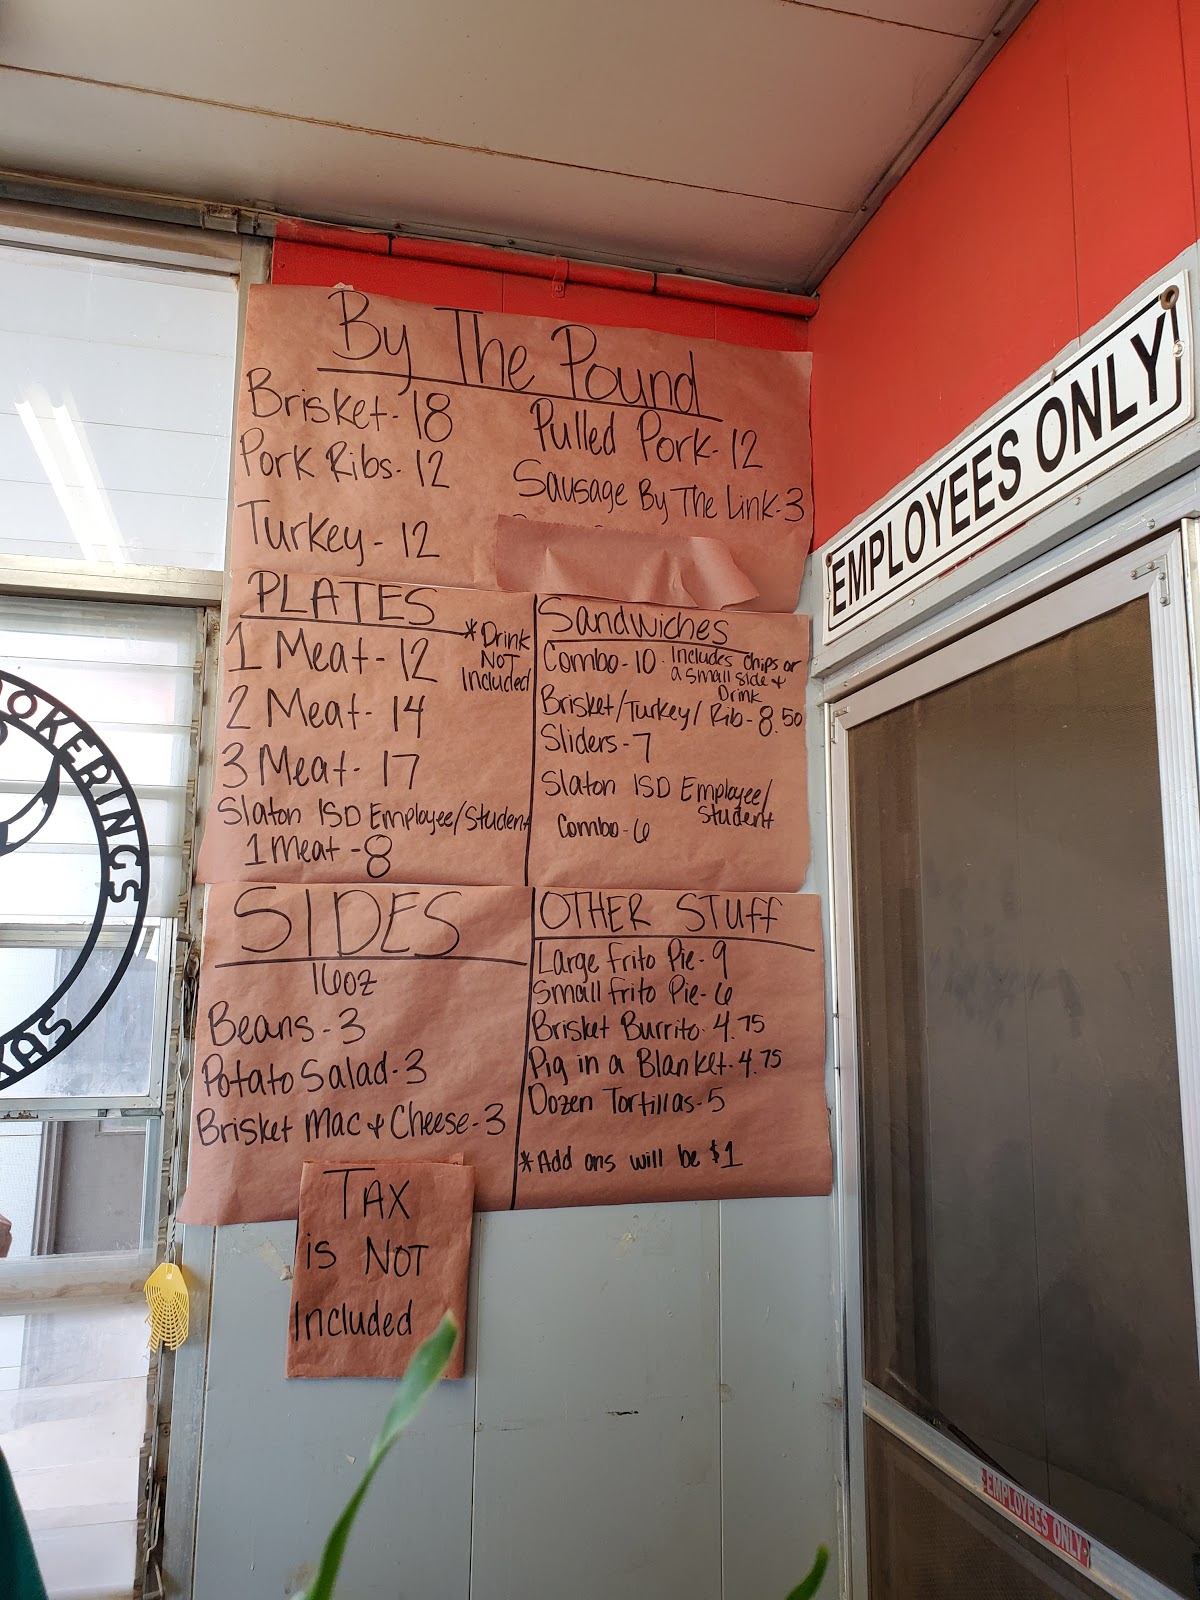 By The Pound
Brisket-18
Pork Ribs-12
Turkey-12
Pulled Pork-12
Sausage By The Link-3
PLATES
*Drink
NOT
Included
1 Meat-12
2 Meat-14
3 Meat-17
Slaton ISD Employee/Student
1 Meat-8
Sandwiches
Combo-10. Includes chips or
a small side &
Drink
Brisket/Turkey/Rib-8.50
Sliders-7
Slaton ISD Employee/
Student
Combo-6
SIDES
16oz
Beans-3
Potato Salad-3
Brisket Mac & Cheese-3
OTHER STUFF
Large Frito Pie-9
Small Frito Pie-6
Brisket Burrito-4.75
Pig in a Blanket-4.75
Dozen Tortillas-5
*Add ons will be $1
TAX
is NOT
Included
EMPLOYEES ONLY
EMPLOYEES ONLY